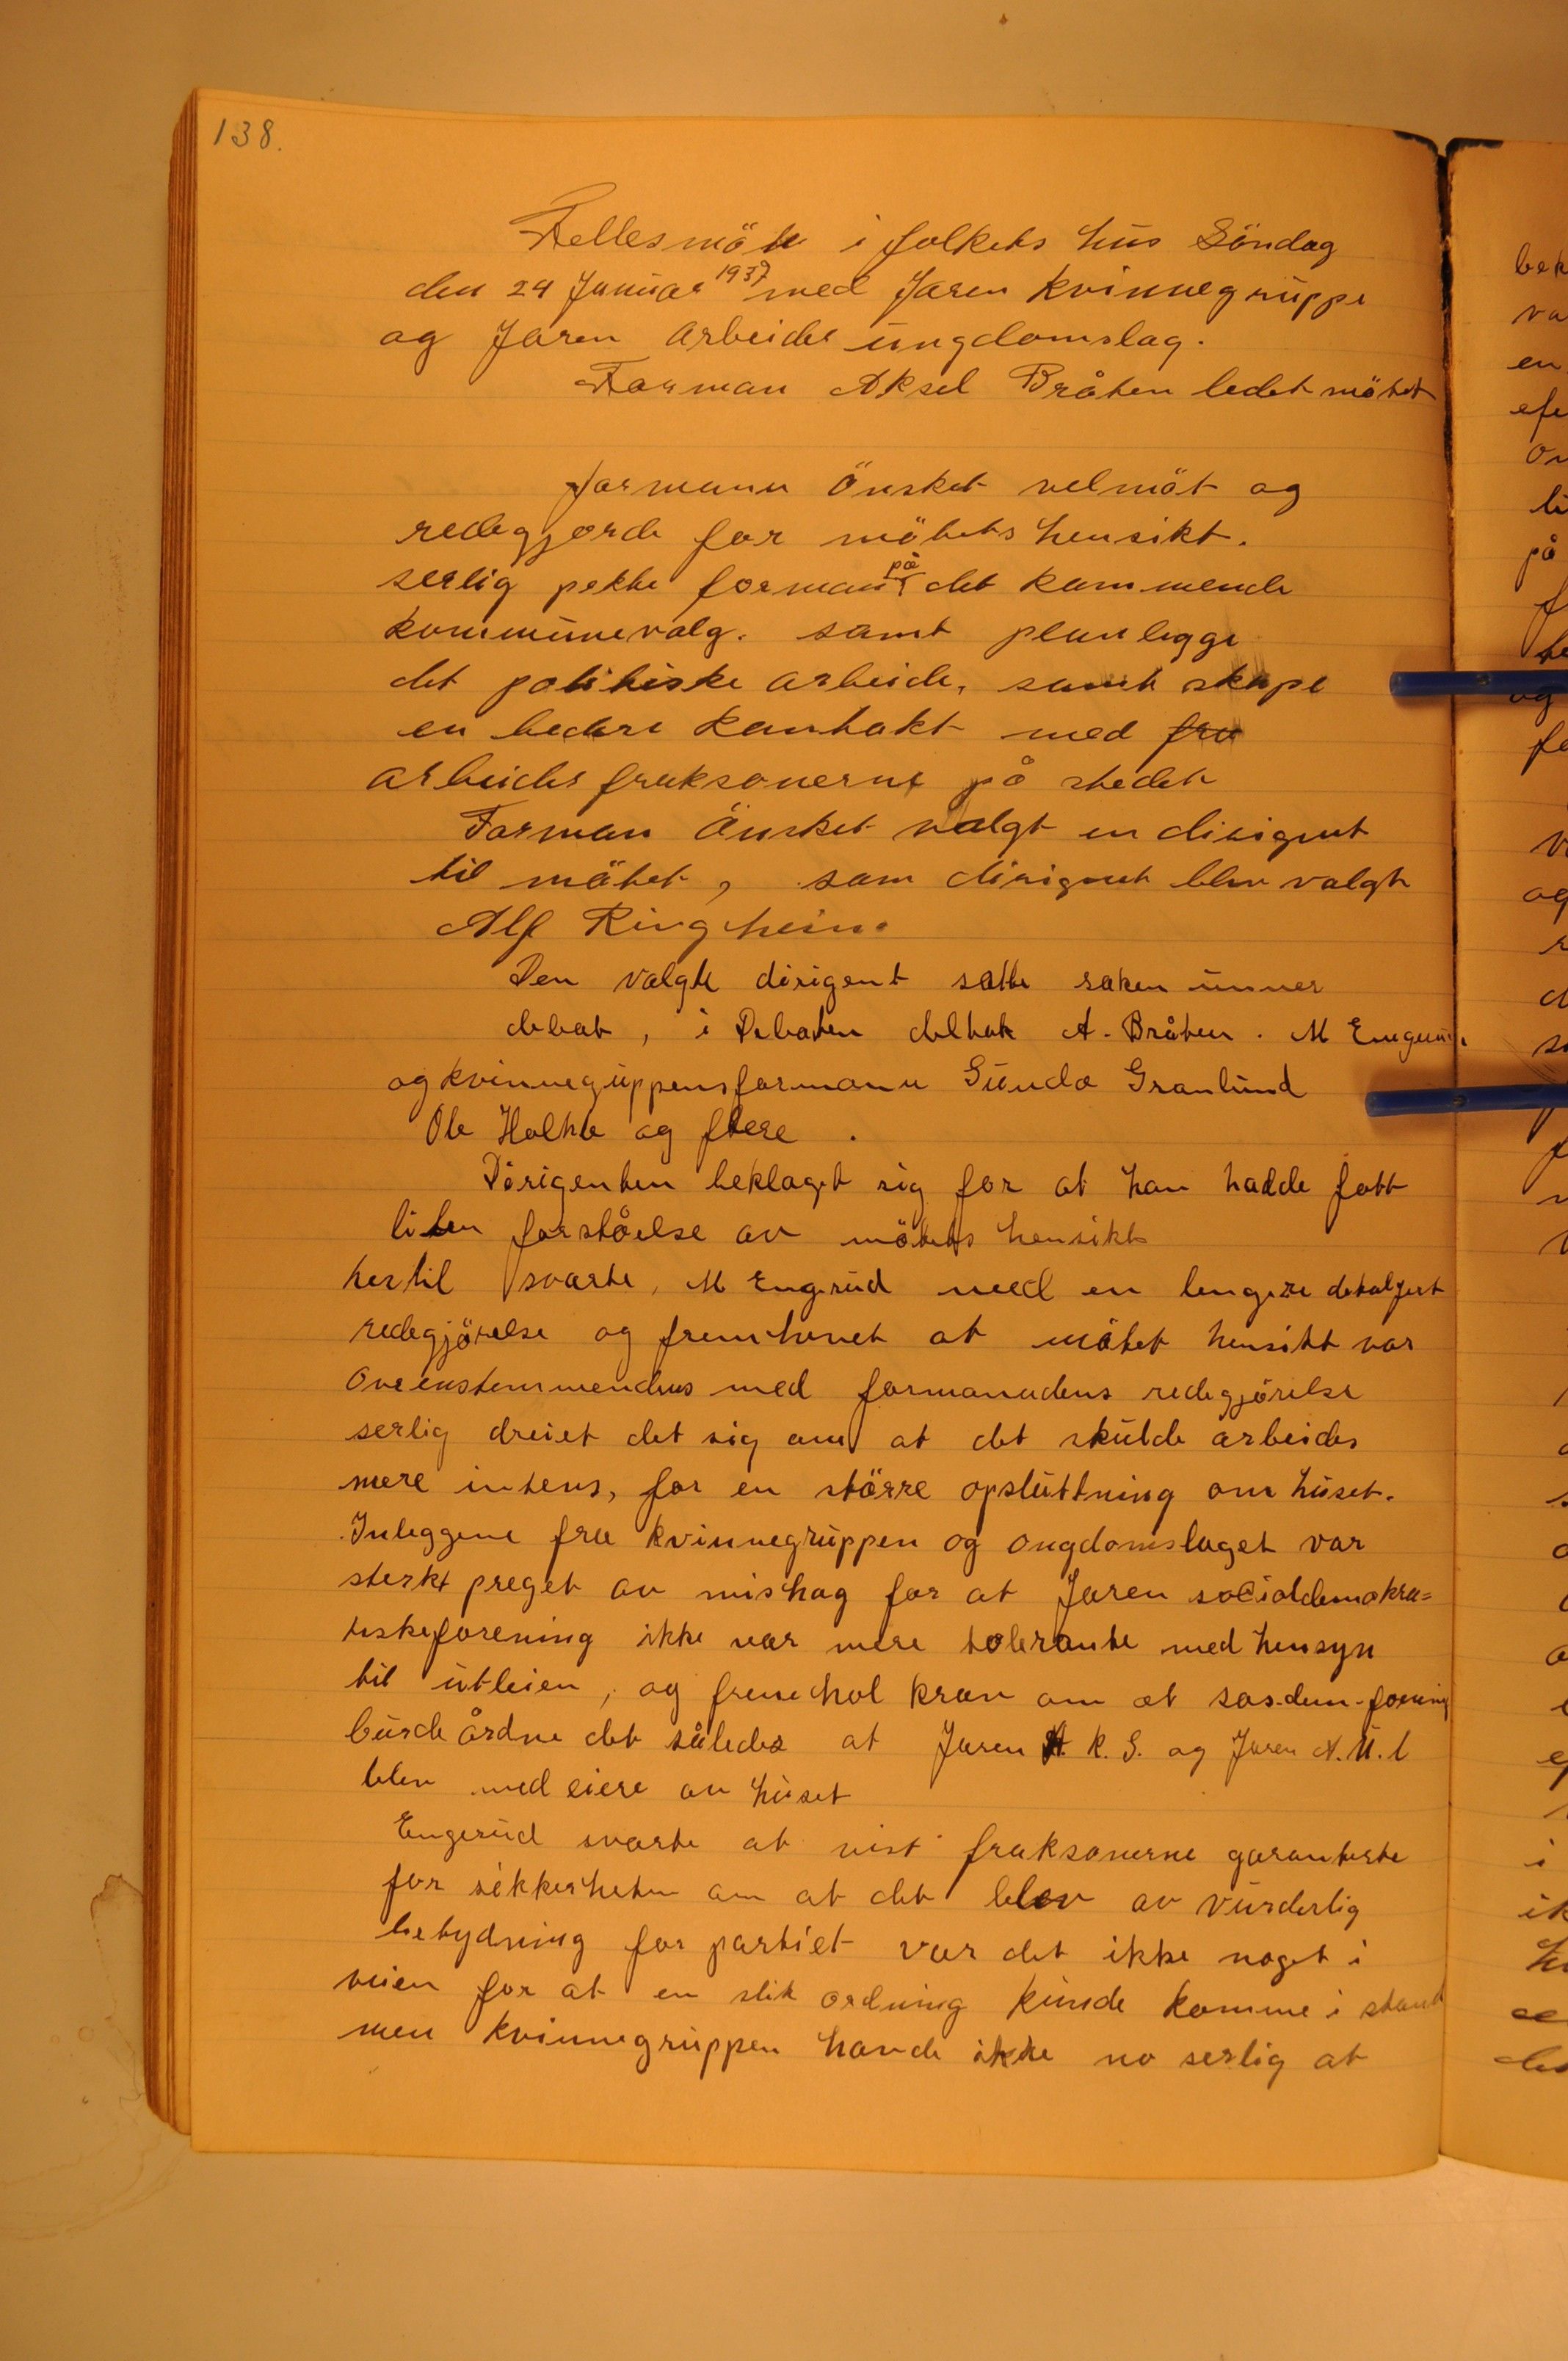 138.
Fellesmöte i folkets hus Söndag
den 24 Januar 1937 med Jaren kvinnegruppe
og Jaren arbeider ungdomslag.
Forman Aksel Bråten ledet mötet
formann önsket velmöt og
redegjorde for mötets hensikt.
serlig pekte forman på det kommende
kommunevalg. samt planlegge
det politiske arbeide, samt skape
en bedere kontakt med fra
arbeider fraksonerne på stedet
Forman önsket valgt en dirigent
til mötet, som dirigent blev valgt
Alf Ringheim.
Den valgte dirigent satte saken unner
debat, i Debaten deltok A. Bråten. M Engerud
og kvinneguppens formann Gunda Granlund
Ole Holhte og flere.
Dirigenten beklaget sig for at han hadde fott
liten forståelse av mötets hensikt
hertil svarte, M Engerud med en lengere detaljert
redegjörelse og fremhevet at mötet hensikt var
overenstemmendes med formanndens redegjörelse
serlig dreiet det sig om at det skulde arbeides
mere intens, for en större opsluttning om huset.
Inleggene fra kvinnegruppen og ongdomslaget var
sterkt preget av mishag for at Jaren socialdemokra=
tiskeforening ikke var mere tolerante med hensyn
til utleien, og fremhol krav om at sos-dem-forening
burde årdne det således at Jaren A. K. G. og Jaren A. U. l
blev med eiere av huset
Engerud svarte at vist fraksonerne garanterte
for sikkerheten om at det blev av vurderlig
betydning for partiet var det ikke noget i
veien for at en slik ordning kunde komme i stand
men kvinnegruppen havde ikke no serlig at